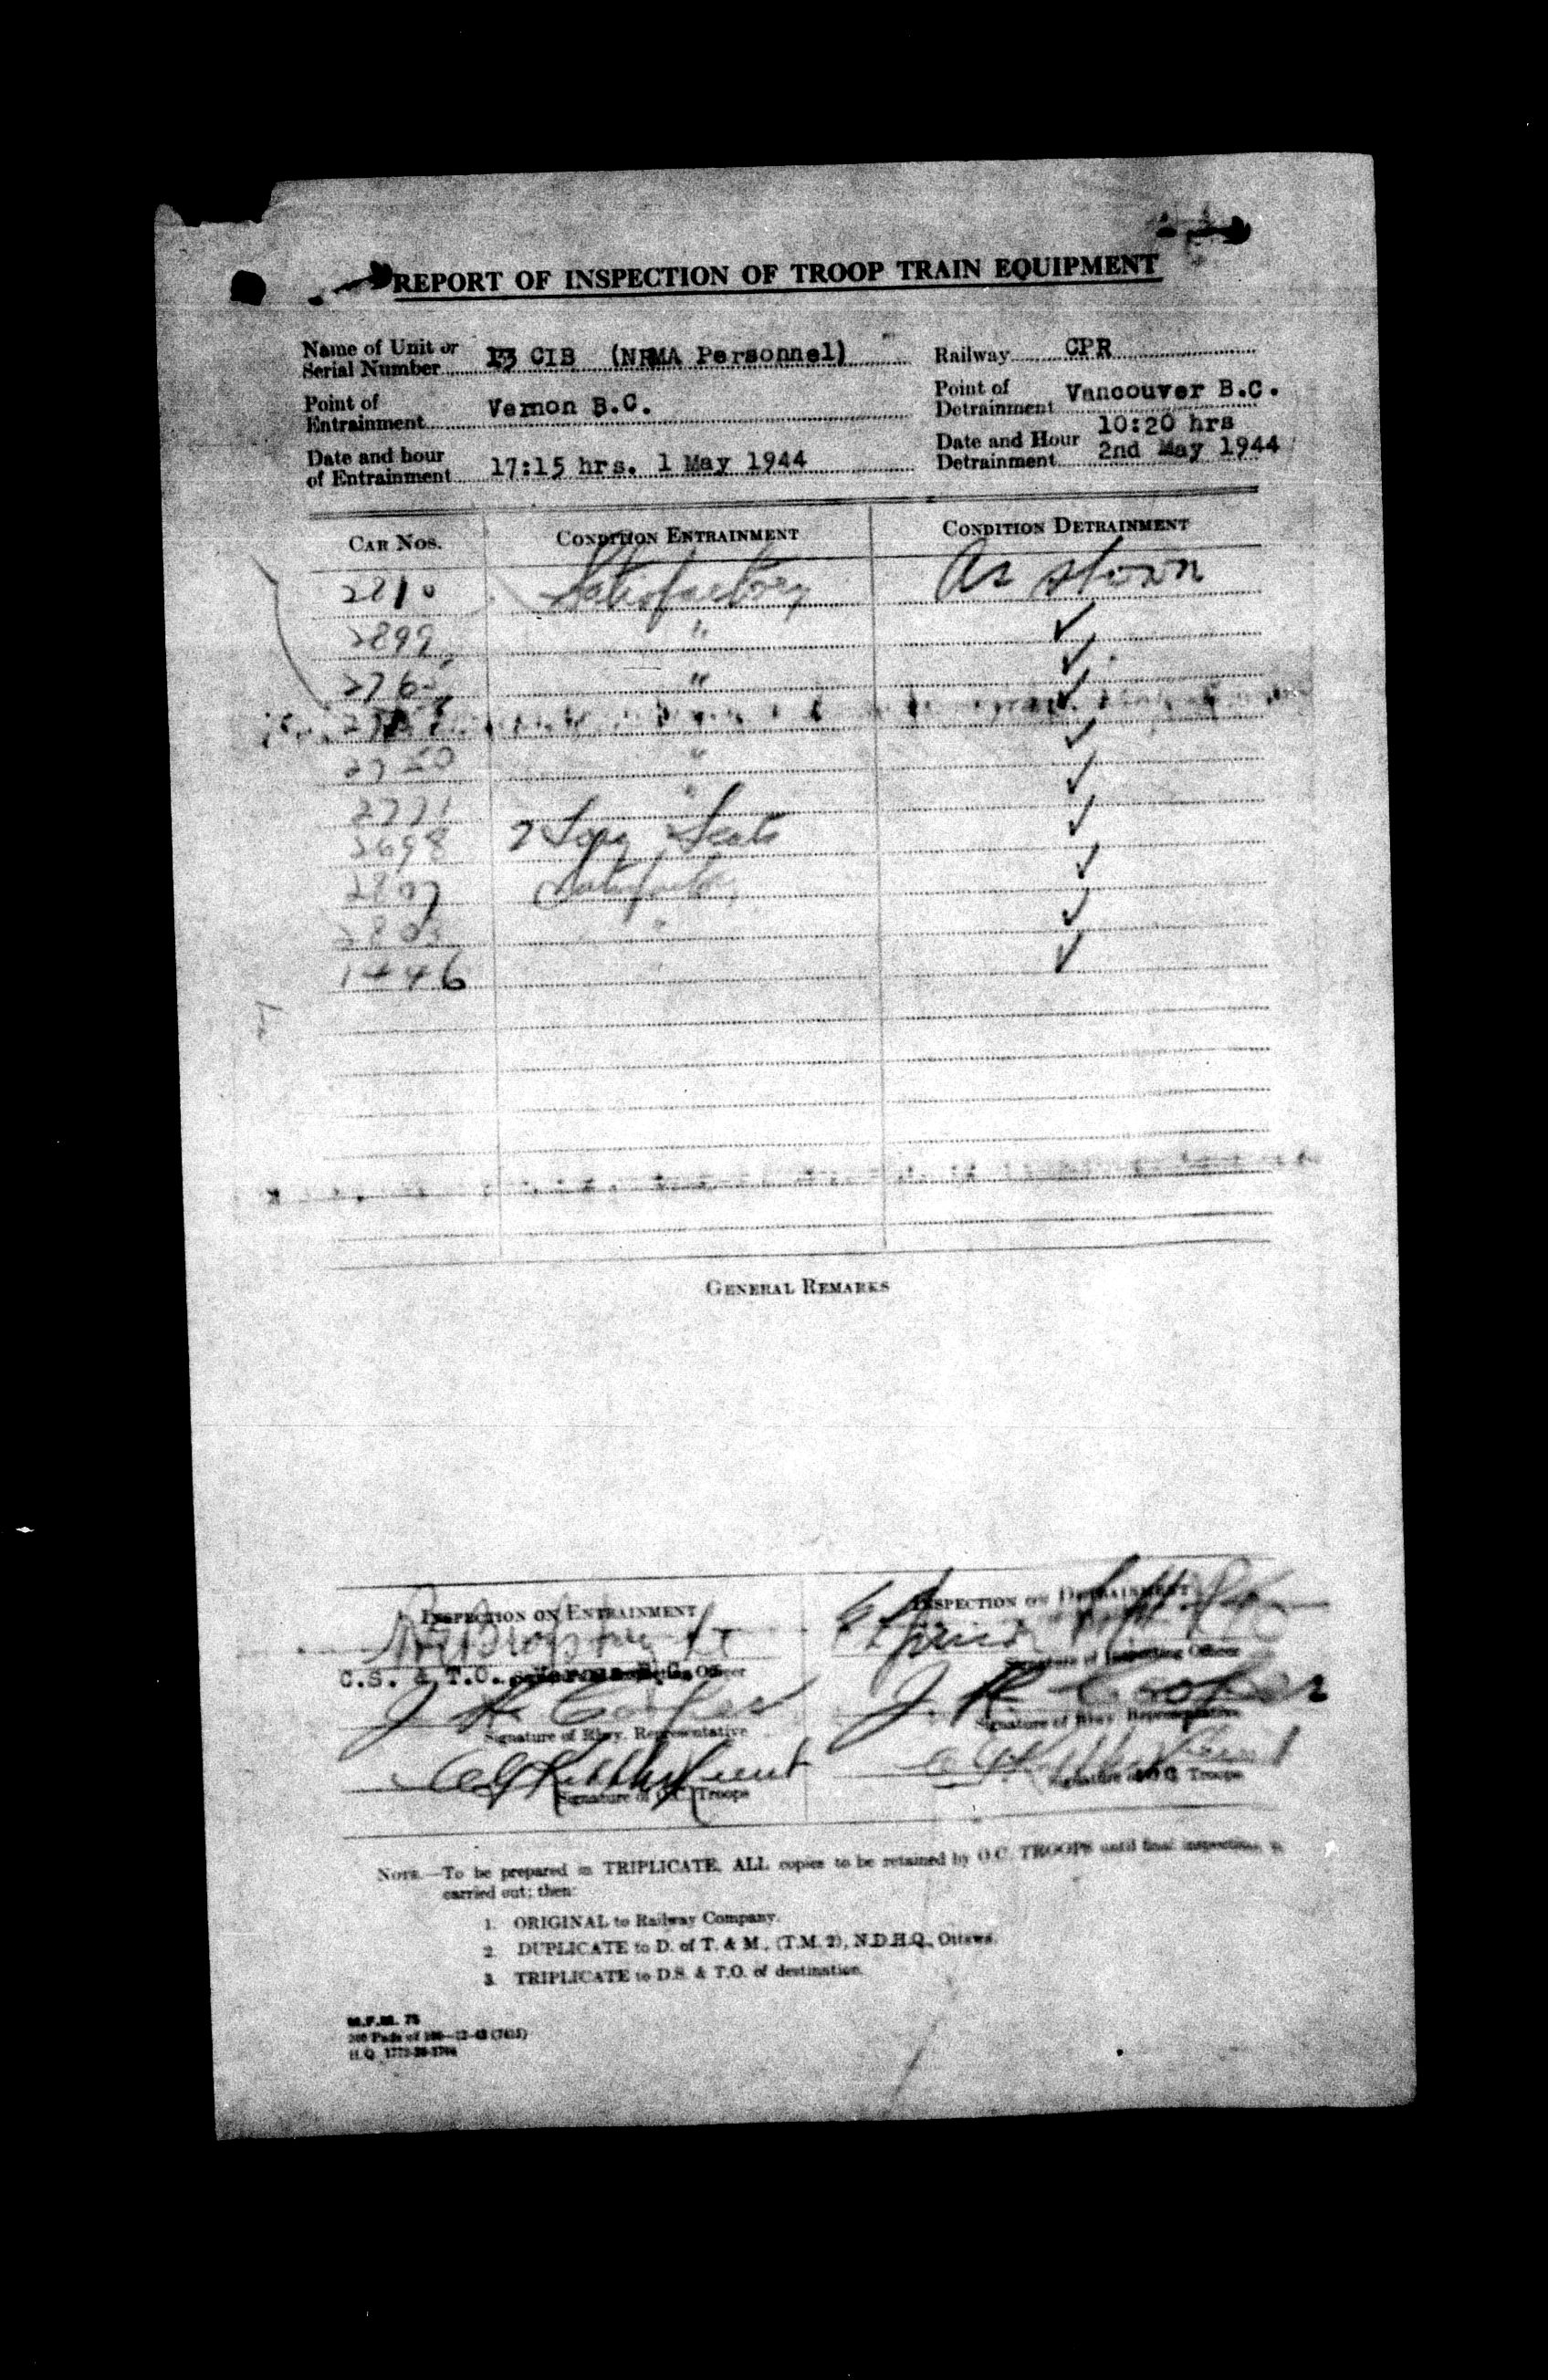 REPORT OF INSPECTION OF TROOP TRAIN EQUIPMENT
Name of Unit or Serial Number 13 CIB (NRMA Personnel)
Railway CPR
Point of Entrainment Vernon B.C.
Point of Detrainment Vancouver B.C.
Date and hour of Entrainment 17:15 hrs. 1 May 1944
Date and Hour Detrainment 10:20 hrs 2nd May 1944
CAR NOS. CONDITION ENTRAINMENT CONDITION DETRAINMENT
2810 Satisfactory As shown
2899 " ✓
" ✓
✓
2720 " ✓
2771 " ✓
2698 Seats ✓
2807 Satisfactory ✓
" ✓
1446 ✓
GENERAL REMARKS
INSPECTION ON ENTRAINMENT
INSPECTION ON DETRAINMENT
C.S. & T.O. Vernon B.C.
Signature of Inspecting Officer
J. R. Cooper
J. R. Cooper
Signature of Rlwy. Representative
Signature of Rlwy. Representative
Signature of O.C. Troops
Signature of O.C. Troops
NOTE.—To be prepared in TRIPLICATE. ALL copies to be retained by O.C. TROOPS until final inspection is
carried out; then:
1. ORIGINAL to Railway Company.
2. DUPLICATE to D. of T. & M., (T.M. 2), N.D.H.Q., Ottawa.
3. TRIPLICATE to D.S. & T.O. of destination.
M.F.M. 75
H.Q.